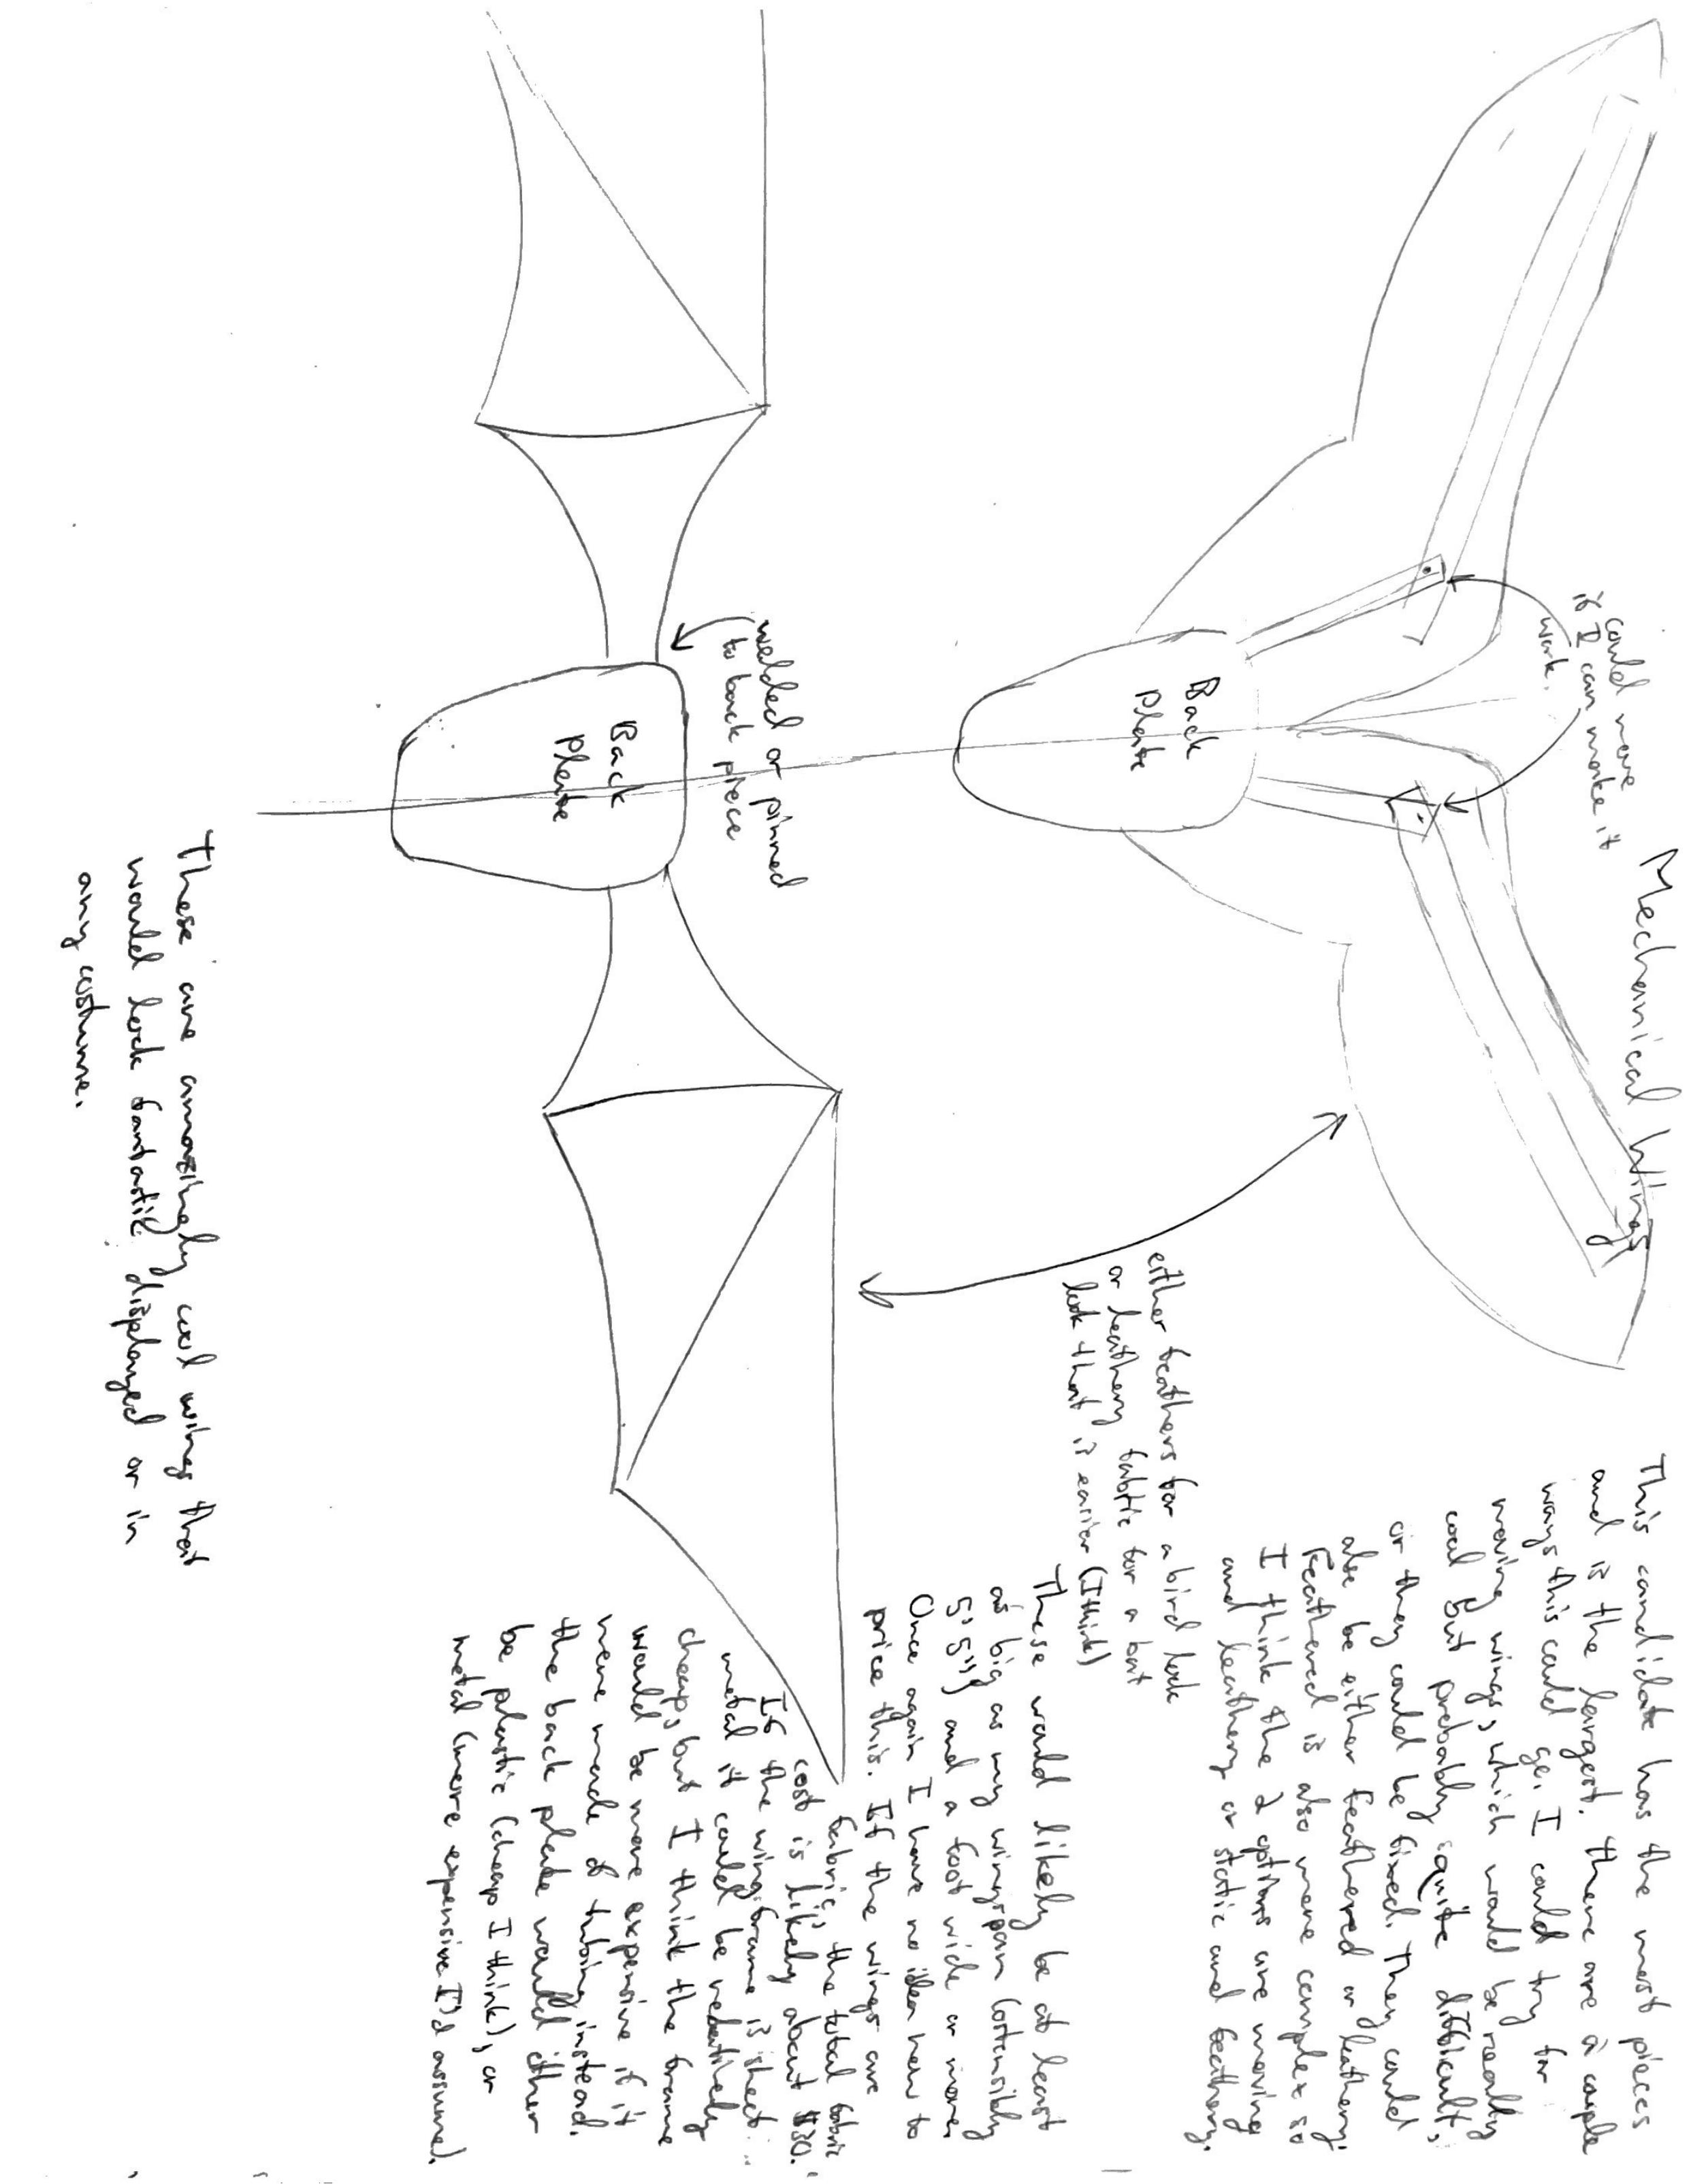 Mechanical Wings
could move
if I can make it
work.
Back
Plate
This candidate has the most pieces
and is the largest. There are a couple
ways this could go. I could try for
moving wings, which would be really
cool but probably quite difficult,
or they could be fixed. They could
also be either feathered or leathery.
Feathered is also more complex so
I think the 2 options are moving
and leathery or static and feathery.
either feathers for a bird look
or leathery fabric for a bat
look that is easier (I think)
These would likely be at least
as big as my wingspan (ostensibly
5'5") and a foot wide or more.
Once again I have no idea how to
price this. If the wings are
fabric, the total fabric
cost is likely about $30.
If the wing frame is sheet
metal it could be relatively
cheap, but I think the frame
would be more expensive if it
were made of tubing instead.
the back plate would either
be plastic (cheap I think), or
metal (more expensive I'd assume).
welded or pinned
to back piece
Back
Plate
These are amazingly cool wings that
would look fantastic displayed or in
any costume.